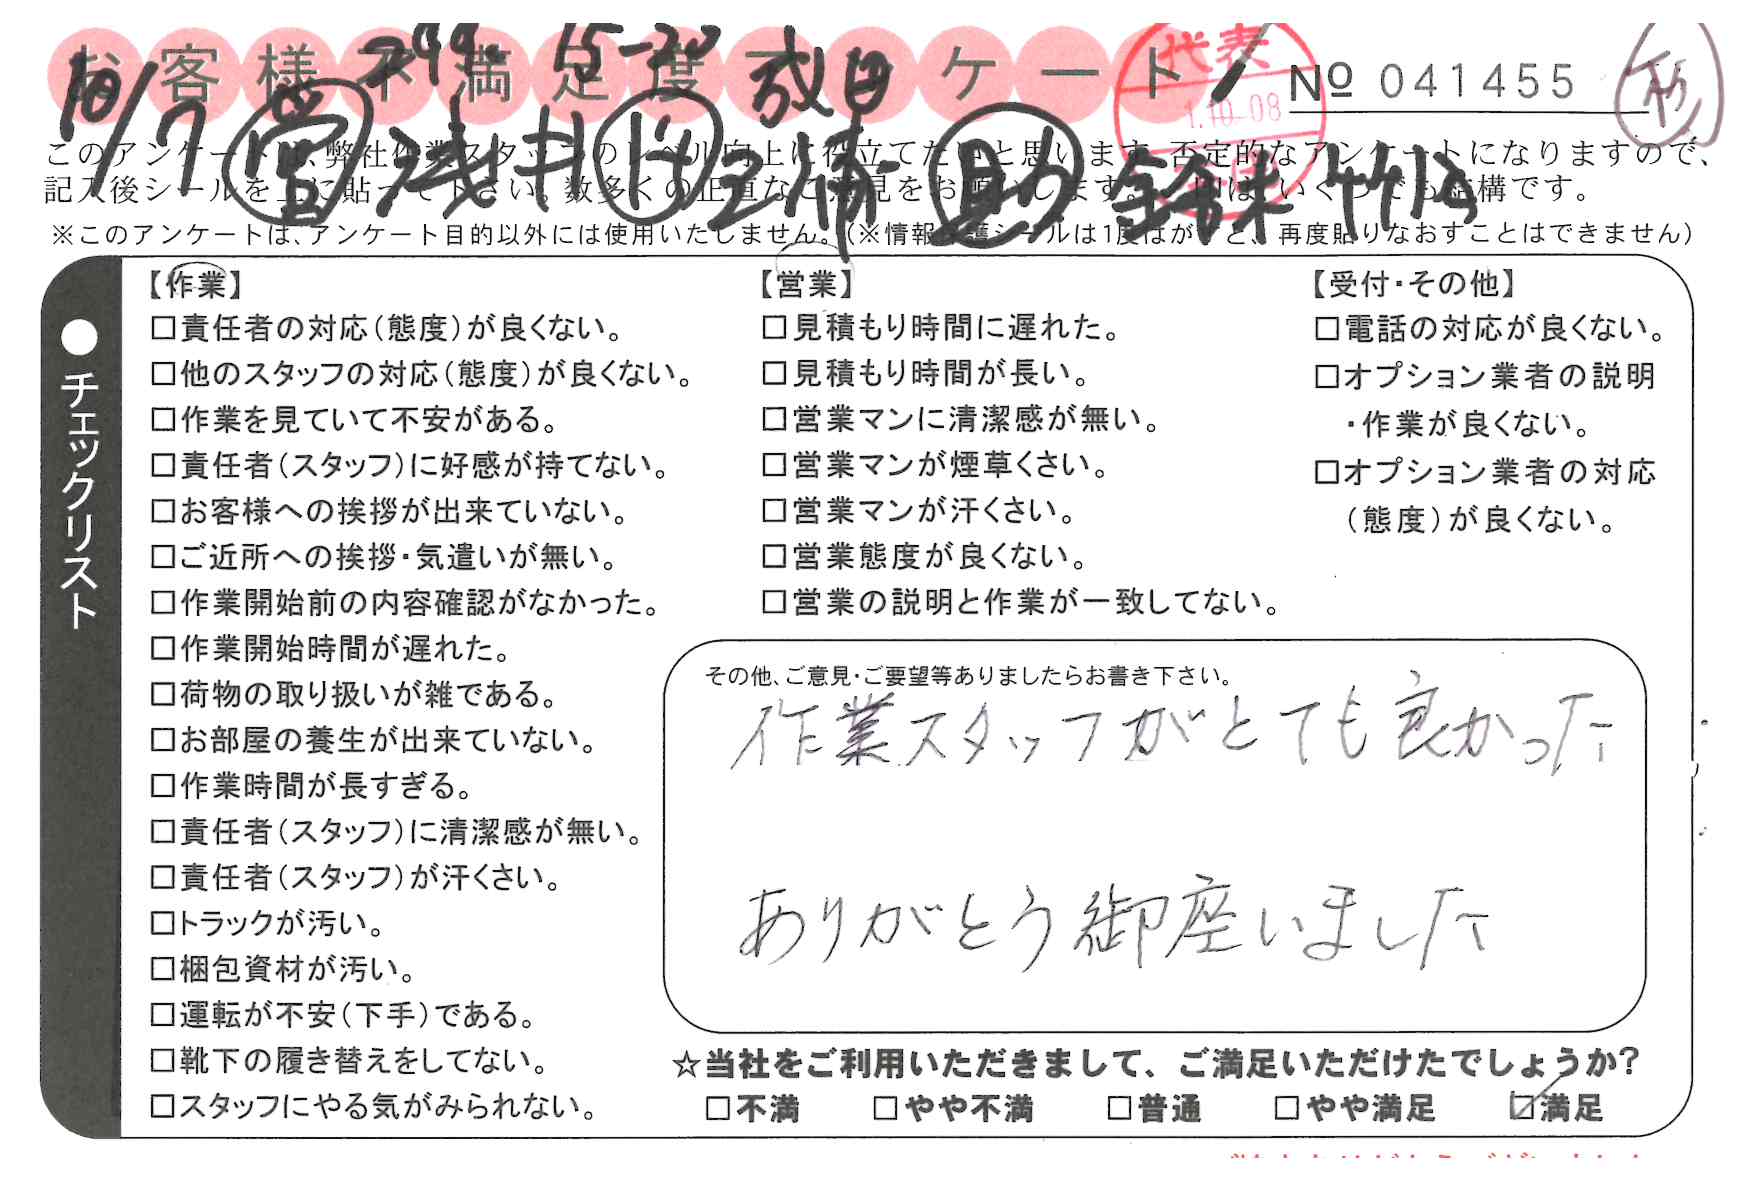 お客様不満足度アンケート
№ 041455
10/7 299. 15-20
営 浅井 三浦 助 鈴木 竹内
代表
1.10-08
このアンケートは、弊社作業スタッフのレベル向上に役立てたいと思います。否定的なアンケートになりますので、
記入後シールを上に貼って下さい。数多くの正直なご意見をお願いします。 いくつでも結構です。
※このアンケートは、アンケート目的以外には使用いたしません。(※情報保護シールは1度はがすと、再度貼りなおすことはできません)
●チェックリスト
【作業】
□責任者の対応(態度)が良くない。
□他のスタッフの対応(態度)が良くない。
□作業を見ていて不安がある。
□責任者(スタッフ)に好感が持てない。
□お客様への挨拶が出来ていない。
□ご近所への挨拶・気遣いが無い。
□作業開始前の内容確認がなかった。
□作業開始時間が遅れた。
□荷物の取り扱いが雑である。
□お部屋の養生が出来ていない。
□作業時間が長すぎる。
□責任者(スタッフ)に清潔感が無い。
□責任者(スタッフ)が汗くさい。
□トラックが汚い。
□梱包資材が汚い。
□運転が不安(下手)である。
□靴下の履き替えをしてない。
□スタッフにやる気がみられない。
【営業】
□見積もり時間に遅れた。
□見積もり時間が長い。
□営業マンに清潔感が無い。
□営業マンが煙草くさい。
□営業マンが汗くさい。
□営業態度が良くない。
□営業の説明と作業が一致してない。
【受付・その他】
□電話の対応が良くない。
□オプション業者の説明
・作業が良くない。
□オプション業者の対応
(態度)が良くない。
その他、ご意見・ご要望等ありましたらお書き下さい。
作業スタッフがとても良かった
ありがとう御座いました
☆当社をご利用いただきまして、ご満足いただけたでしょうか?
□不満 □やや不満 □普通 □やや満足 ☑満足